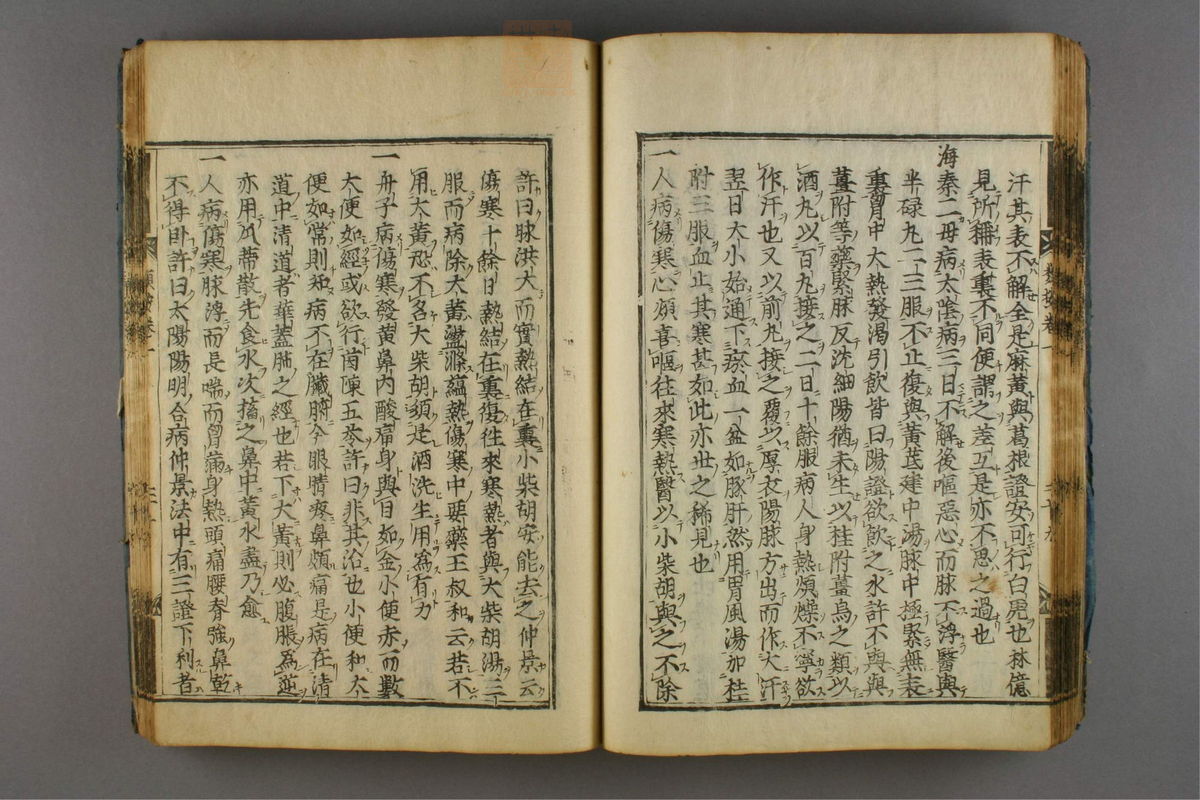 汗其表不解全是麻黄與葛根證安可行白虎也林億
見所稱表裏不同便謂之差互是亦不思之過也
海秦二母病太陰病三日不解後嘔惡心而脉不浮醫與
半碌丸二三服不止復與黄芪建中湯脉中極緊無表
裏胷中大熱發渴引飲皆曰陽證欲飲之水許不與與
薑附等藥緊脉反沈細陽猶未生以桂附薑烏之類以
酒丸以百丸接之二日十餘服病人身熱煩燥不寧欲
作汗也又以前丸接之覆以厚衣陽脉方出而作大汗
翌日大小始通下瘀血一盆如豚肝然用胃風湯加桂
附三服血止其寒甚如此亦世之稀見也
一人病傷寒心煩喜嘔往來寒熱醫以小柴胡與之不除
許曰脉洪大而實熱結在裏小柴胡安能去之仲景云
傷寒十餘日熱結在裏復往來寒熱者與大柴胡湯三
服而病除大黄盪滌蘊熱傷寒中要藥王叔和云若不
用大黄恐不名大柴胡須是酒洗生用爲有力
一舟子病傷寒發黄鼻内酸痛身與目如金小便赤而數
大便如經或欲行茵陳五苓許曰非其治也小便和大
便如常則知病不在臟腑今眼睛疼鼻頞痛是病在清
道中清道者華蓋肺之經也若下大黄則必腹脹爲逆
亦用瓜蒂散先含水次搐之鼻中黄水盡乃愈
一人病傷寒脉浮而長喘而胷滿身熱頭痛腰脊強鼻乾
不得卧許曰太陽陽明合病仲景法中有三證下利者